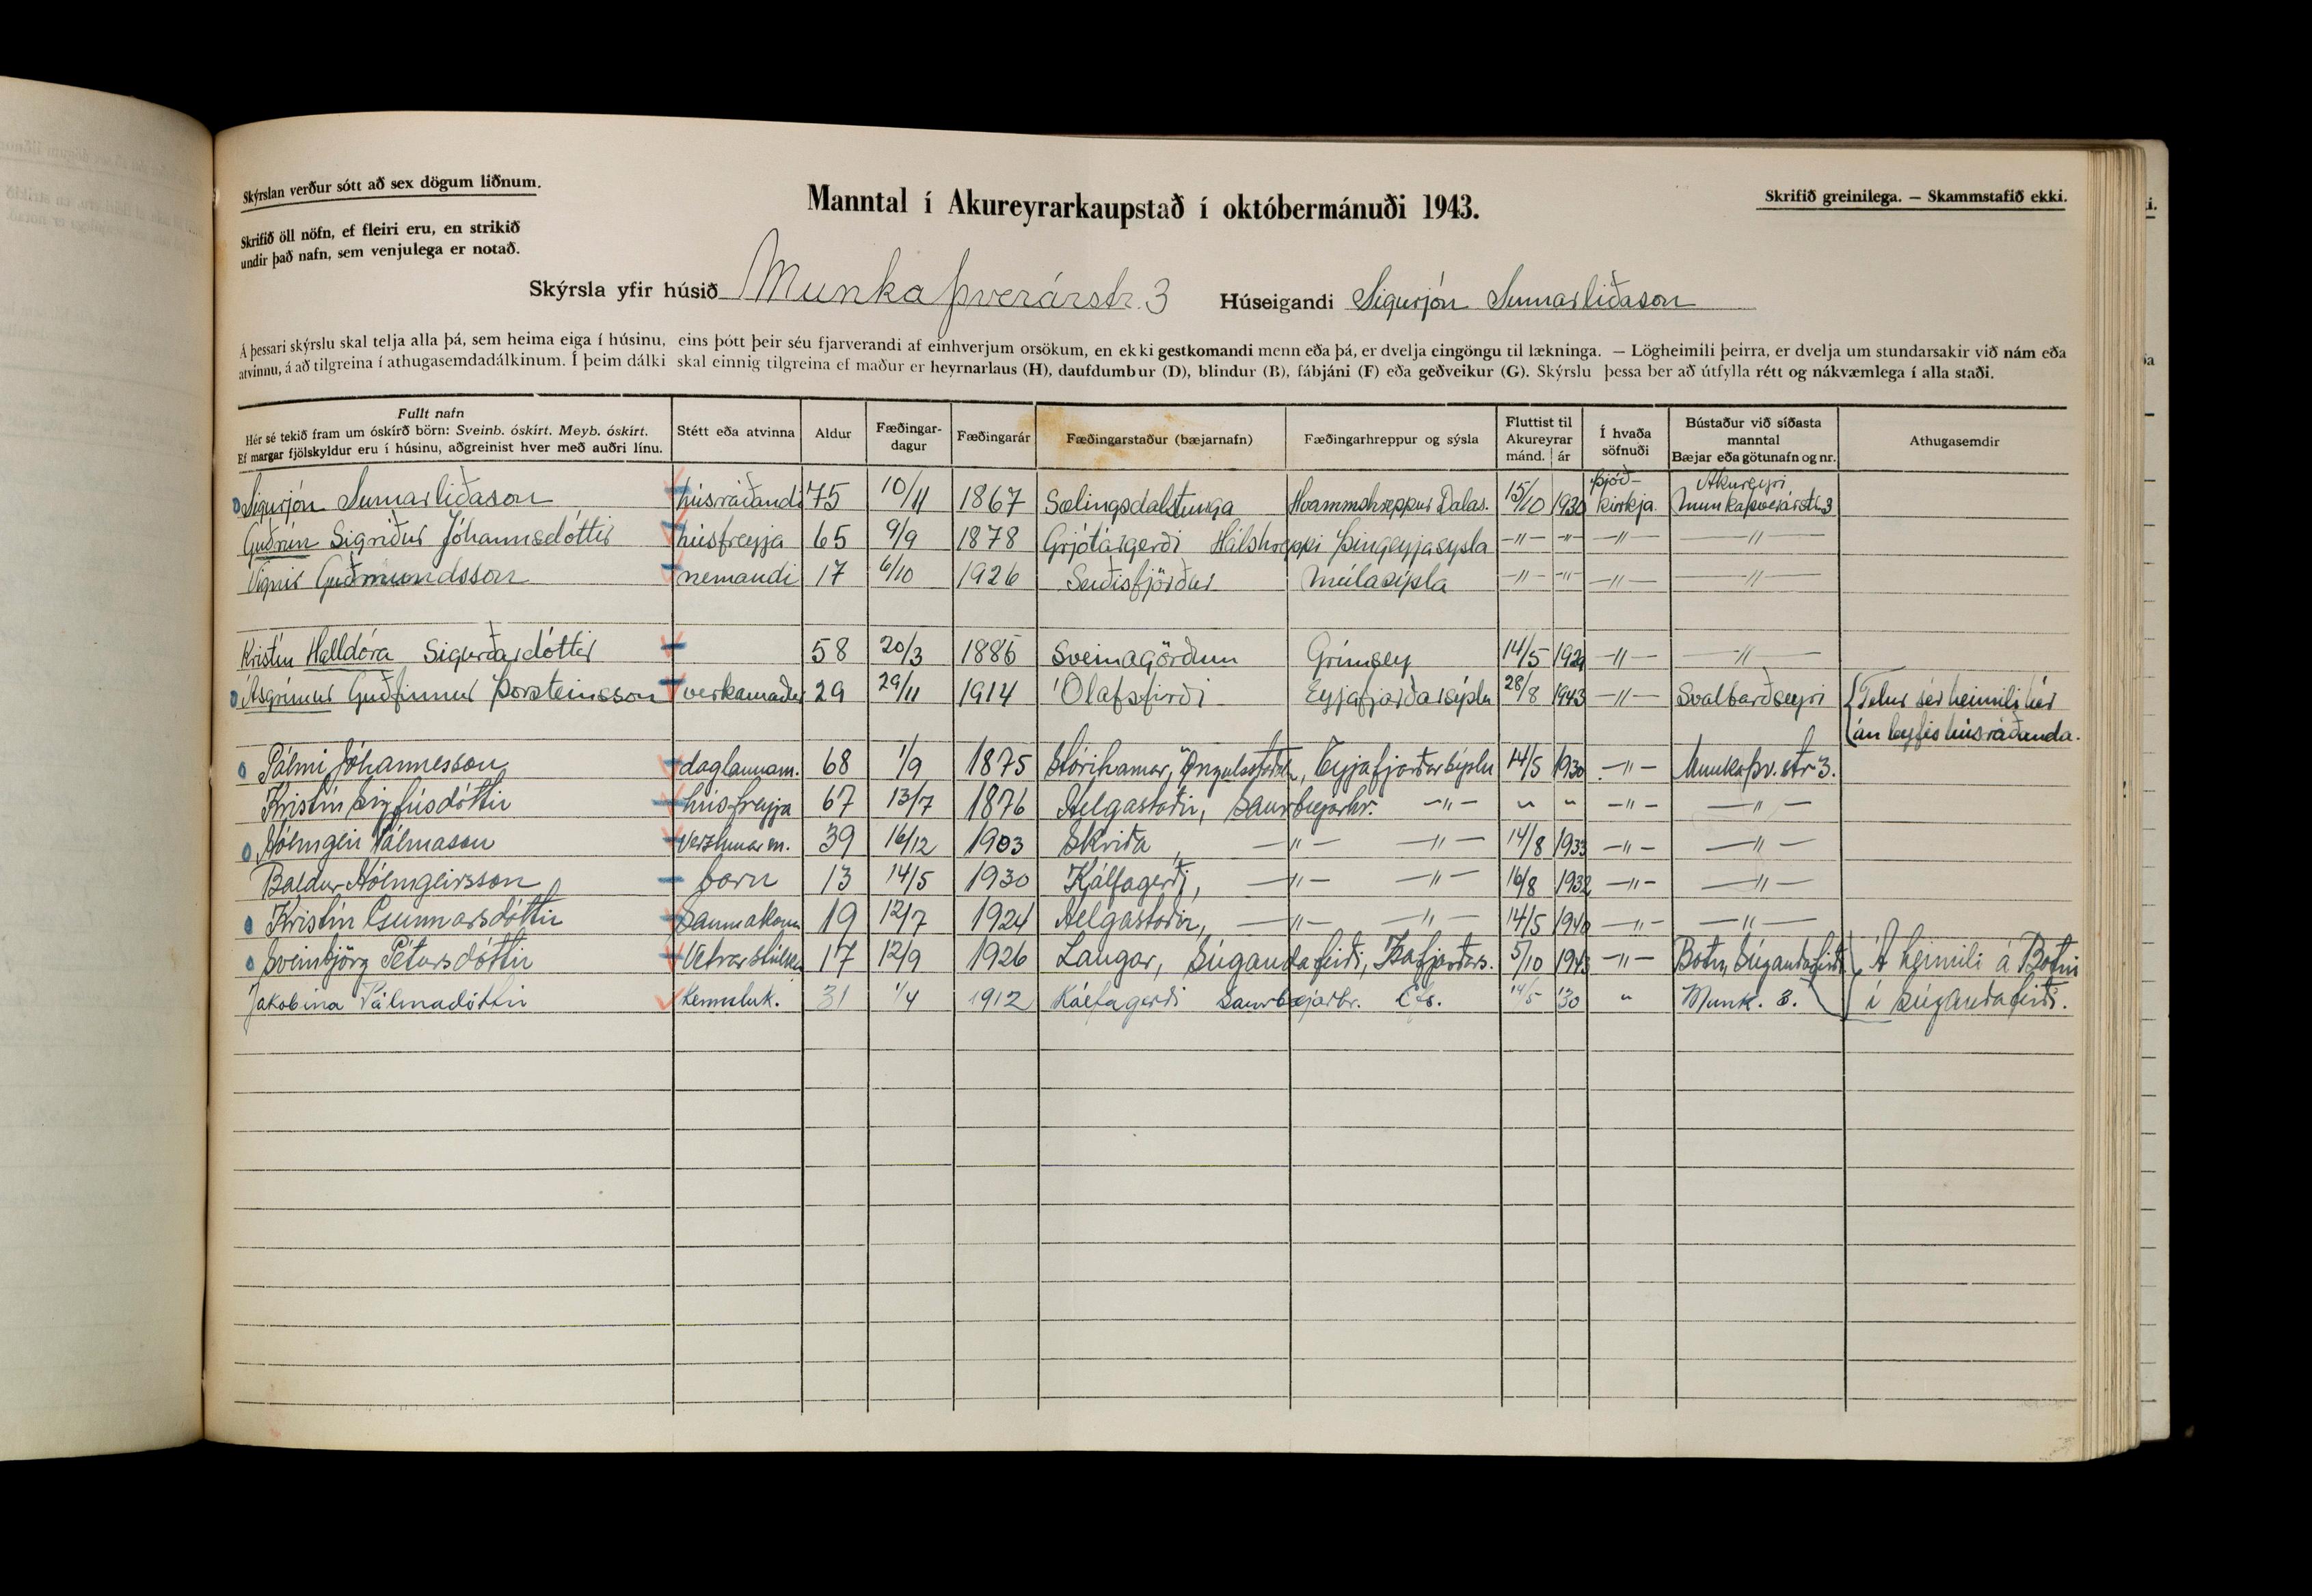 Skýrslan verður sótt að sex dögum liðnum.
Skrifið öll nöfn, ef fleiri eru, en strikið
undir það nafn, sem venjulega er notað.
Manntal í Akureyrarkaupstað í októbermánuði 1943.
Skrifið greinilega. — Skammstafið ekki.
Skýrsla yfir húsið Munkaþverárstr. 3 Húseigandi Sigurjón Sumarliðason
Á þessari skýrslu skal telja alla þá, sem heima eiga í húsinu, eins þótt þeir séu fjarverandi af einhverjum orsökum, en ekki gestkomandi menn eða þá, er dvelja eingöngu til lækninga. — Lögheimili þeirra, er dvelja um stundarsakir við nám eða
atvinnu, á að tilgreina í athugasemdadálkinum. Í þeim dálki skal einnig tilgreina ef maður er heyrnarlaus (H), daufdumbur (D), blindur (B), fábjáni (F) eða geðveikur (G). Skýrslu þessa ber að útfylla rétt og nákvæmlega í alla staði.
Fullt nafn
Hér sé tekið fram um óskírð börn: Sveinb. óskírt. Meyb. óskírt.
Ef margar fjölskyldur eru í húsinu, aðgreinist hver með auðri línu.
Stétt eða atvinna
Aldur
Fæðingar-
dagur
Fæðingarár
Fæðingarstaður (bæjarnafn)
Fæðingarhreppur og sýsla
Fluttist til
Akureyrar
mánd. ár
Í hvaða
söfnuði
Bústaður við síðasta
manntal
Bæjar eða götunafn og nr.
Athugasemdir
Sigurjón Sumarliðason húsráðandi 75 10/11 1867 Sælingsdalstunga Hvammshreppur Dalas. 15/10 1930 Þjóð-kirkja Akureyri Munkaþverárstr 3
Guðrún Sigríður Jóhannsdóttir húsfreyja 65 9/9 1878 Grjótárgerði Hálshreppi Þingeyjasysla -"- -"- -"- -"-
Vignir Guðmundsson nemandi 17 6/10 1926 Seiðisfjörður Múlasýsla -"- -"- -"- -"-
Kristín Halldóra Sigurðardóttir 58 20/3 1885 Sveinagörðum Grímsey 14/5 1929 -"- -"-
Ásgrímur Guðfinnur Þorsteinsson verkamaður 29 29/11 1914 Ólafsfirði Eyjafjarðarsýslu 28/8 1943 -"- Svalbarðseyri Telur sér heimili hér
án leyfis húsráðanda.
Pálmi Jóhannesson daglaunam. 68 1/9 1875 Stórihamar, Öngulsstaðahr, Eyjafjarðarsýslu 14/5 1930 -"- Munkaþv.str 3.
Kristín Sigfúsdóttir húsfreyja 67 13/7 1876 Helgastaðir, Saurbæjarhr. -"- " " -"- -"-
Hólmgeir Pálmason Verzlunarm. 39 16/12 1903 Skriða, -"- -"- 14/8 1933 -"- -"-
Baldur Hólmgeirsson barn 13 14/5 1930 Kálfagerði, -"- -"- 16/8 1932 -"- -"-
Kristín Gunnarsdóttir Saumakona 19 12/7 1924 Helgastaðir, -"- -"- 14/5 1940 -"- -"-
Sveinbjörg Pétursdóttir Vetrarstúlka 17 12/9 1926 Laugar, Súgandafirði, Ísafjarðars. 5/10 1943 -"- Botn, Súgandafirði Á heimili á Botni
Jakobína Pálmadóttir Kennsluk. 31 1/4 1912 Kálfagerði Saurbæjarhr. Efs. 14/5 '30 " Munk. 3. í Súgandafirði.